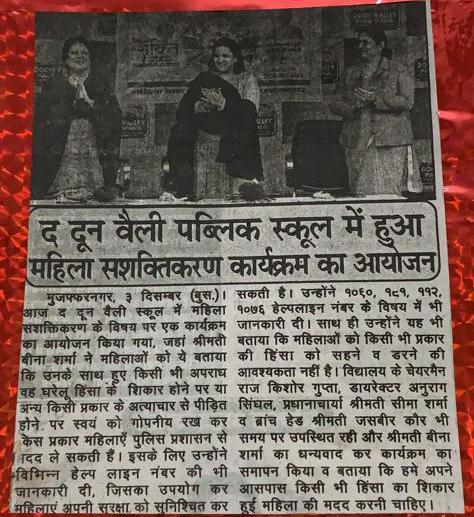 DOON VALLEY
द दून वैली पब्लिक स्कूल में हुआ
महिला सशक्तिकरण कार्यक्रम का आयोजन
मुजफ्फरनगर, ३ दिसम्बर (बुस.)।
आज द दून वैली स्कूल में महिला
सशक्तिकरण के विषय पर एक कार्यक्रम
का आयोजन किया गया, जहां श्रीमती
बीना शर्मा ने महिलाओं को ये बताया
कि उनके साथ हुए किसी भी अपराध
वह घरेलू हिंसा के शिकार होने पर या
अन्य किसी प्रकार के अत्याचार से पीड़ित
होने पर स्वयं को गोपनीय रख कर
केस प्रकार महिलाएँ पुलिस प्रशासन से
मदद ले सकती हैं। इसके लिए उन्होंने
विभिन्न हेल्प लाइन नंबर की भी
जानकारी दी, जिसका उपयोग कर
महिलाएं अपनी सुरक्षा को सुनिश्चित कर
सकती है। उन्होंने १०६०, १८१, ११२,
१०७६ हेल्पलाइन नंबर के विषय में भी
जानकारी दी। साथ ही उन्होंने यह भी
बताया कि महिलाओं को किसी भी प्रकार
की हिंसा को सहने व डरने की
आवश्यकता नहीं है। विद्यालय के चेयरमैन
राज किशोर गुप्ता, डायरेक्टर अनुराग
सिंघल, प्रधानाचार्या श्रीमती सीमा शर्मा
व ब्रांच हेड श्रीमती जसबीर कौर भी
समय पर उपस्थित रही और श्रीमती बीना
शर्मा का धन्यवाद कर कार्यक्रम का
समापन किया व बताया कि हमे अपने
आसपास किसी भी हिंसा का शिकार
हुई महिला की मदद करनी चाहिए।